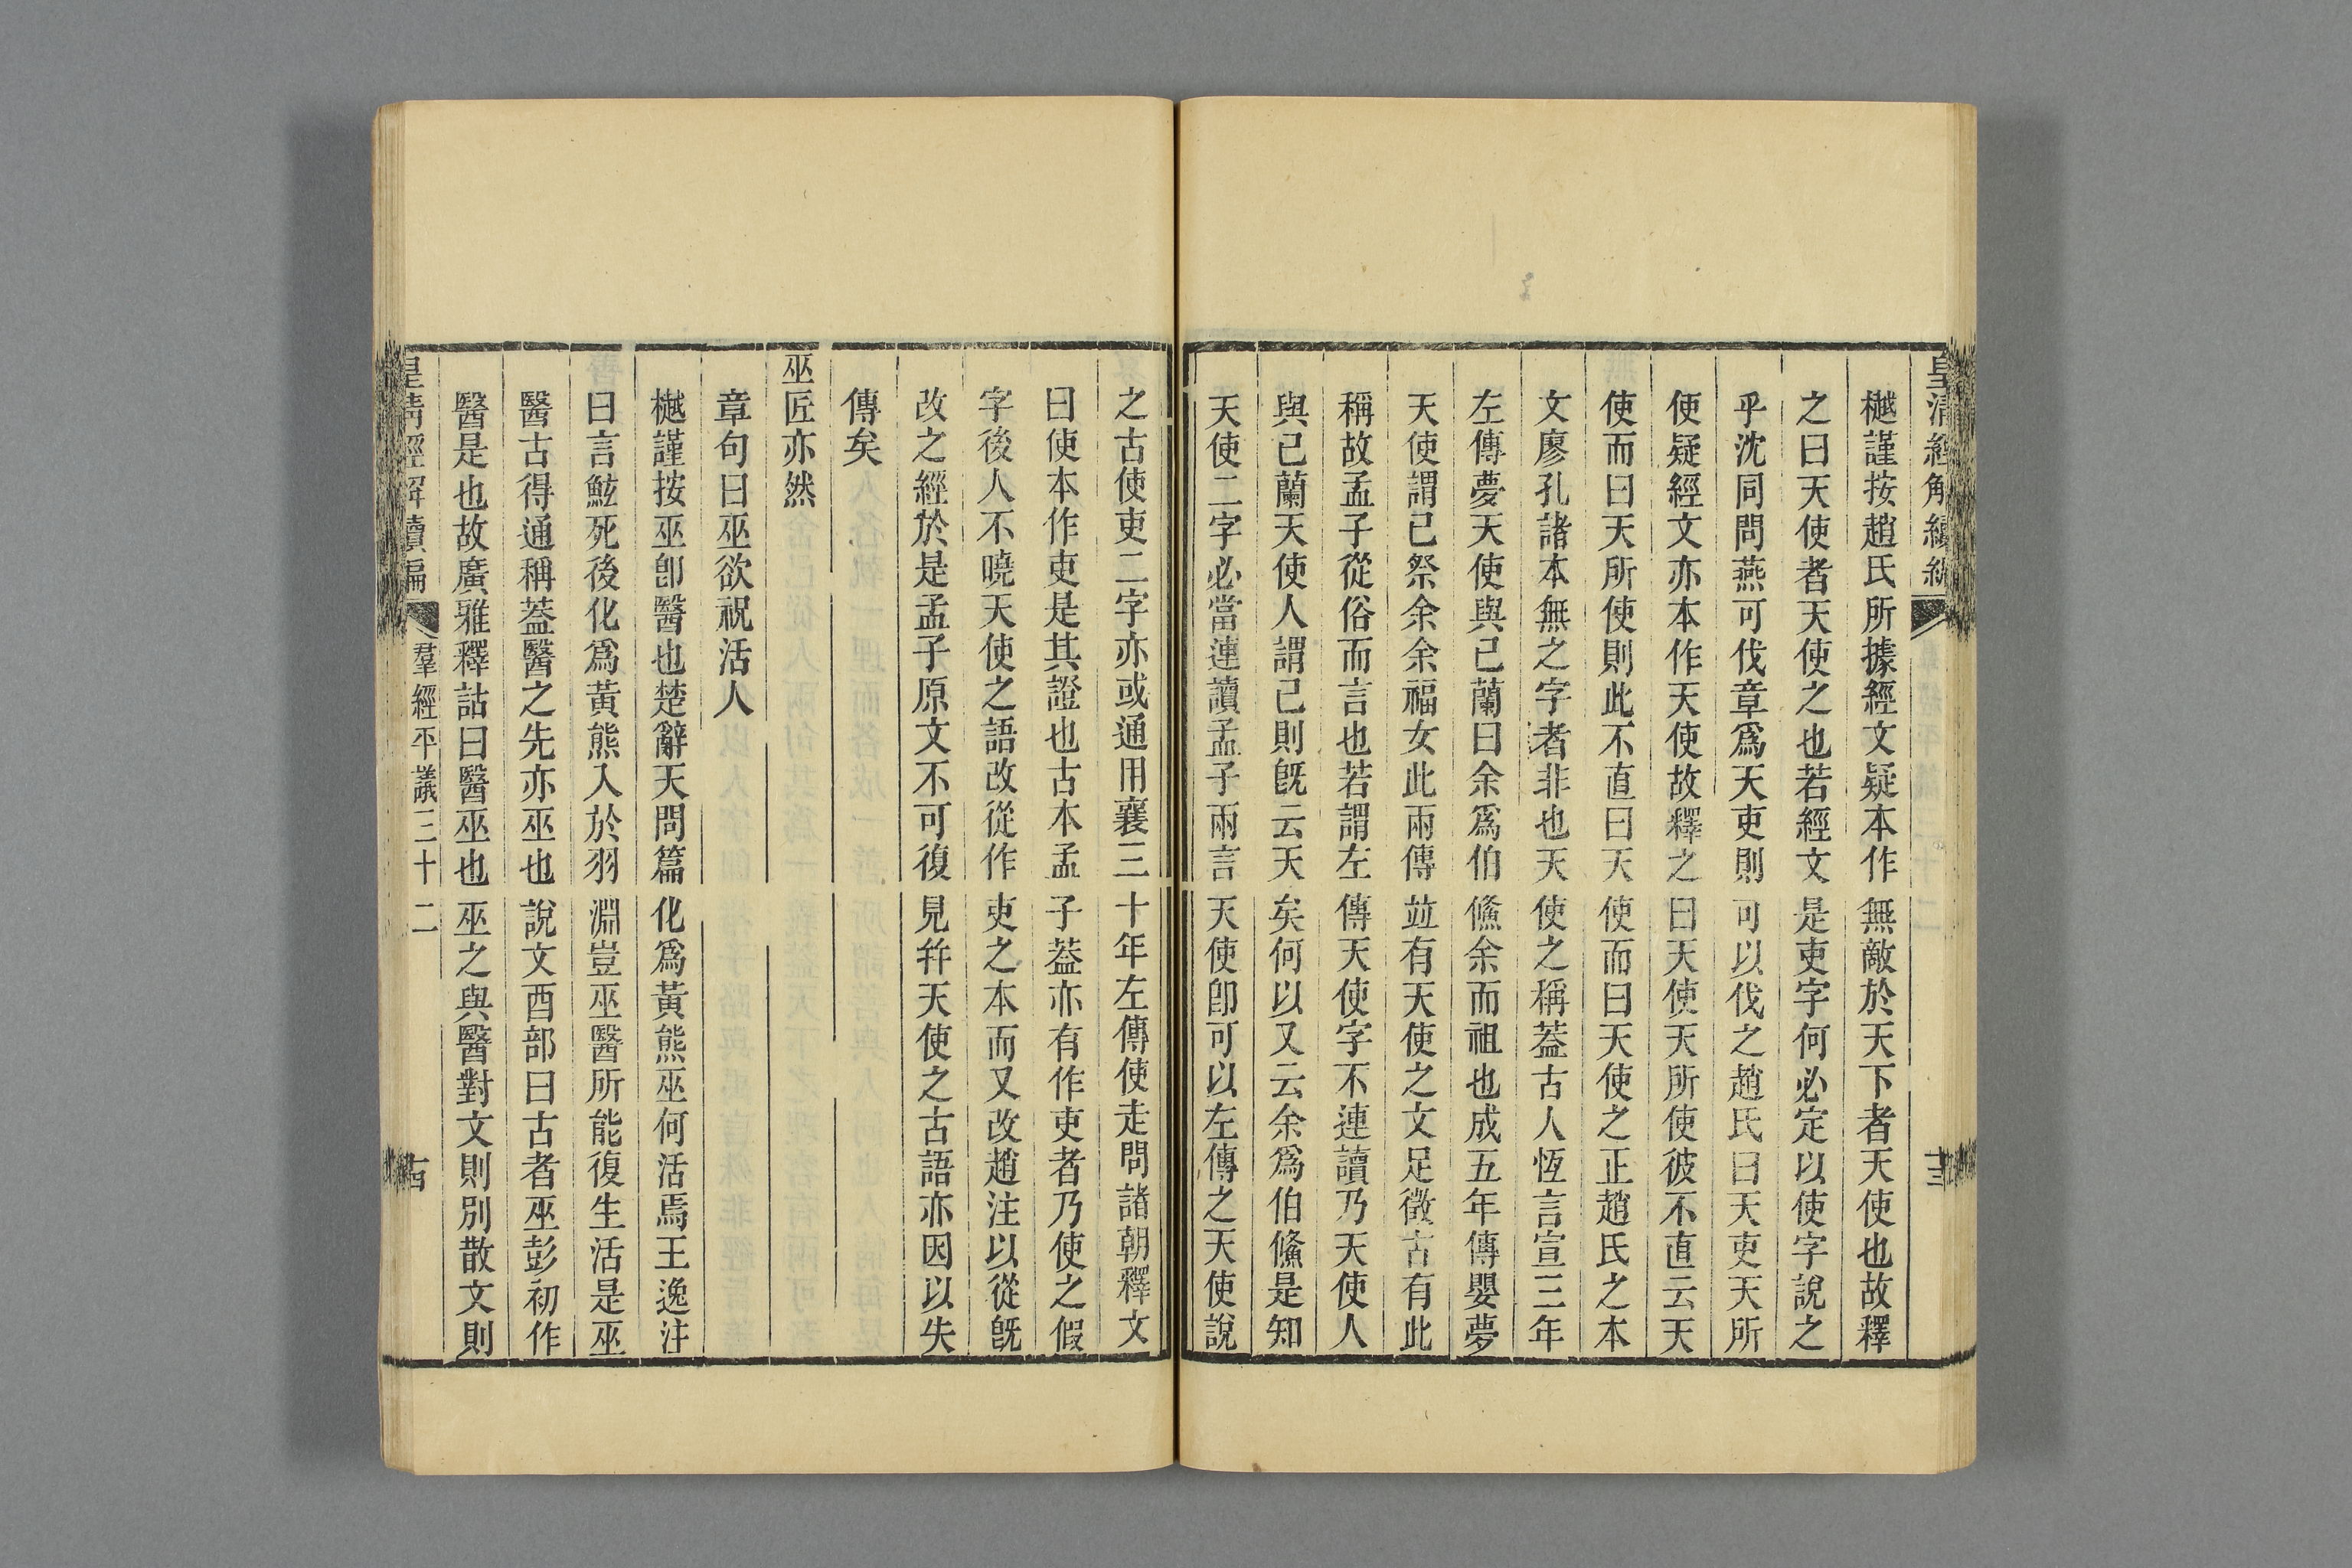 皇清經解續編
十三
樾謹按趙氏所據經文疑本作無敵於天下者天使也故釋
之曰天使者天使之也若經文是吏字何必定以使字說之
乎沈同問燕可伐章爲天吏則可以伐之趙氏曰天吏天所
使疑經文亦本作天使故釋之曰天使天所使彼不直云天
使而曰天所使則此不直曰天使而曰天使之正趙氏之本
文廖孔諸本無之字者非也天使之稱葢古人恆言宣三年
左傳夢天使與已蘭曰余爲伯鯈余而祖也成五年傳嬰夢
天使謂己祭余余福女此兩傳竝有天使之文足徵古有此
稱故孟子從俗而言也若謂左傳天使字不連讀乃天使人
與己蘭天使人謂己則旣云天矣何以又云余爲伯鯈是知
天使二字必當連讀孟子兩言天使卽可以左傳之天使說
之古使吏二字亦或通用襄三十年左傳使走問諸朝釋文
曰使本作吏是其證也古本孟子葢亦有作吏者乃使之假
字後人不曉天使之語改從作吏之本而又改趙注以從旣
改之經於是孟子原文不可復見幷天使之古語亦因以失
傳矣
巫匠亦然
章句曰巫欲祝活人
樾謹按巫卽醫也楚辭天問篇化爲黃熊巫何活焉王逸注
曰言鮌死後化爲黃熊入於羽淵豈巫醫所能復生活是巫
醫古得通稱葢醫之先亦巫也說文酉部曰古者巫彭初作
醫是也故廣雅釋詁曰醫巫也巫之與醫對文則別散文則
皇清經解續編
羣經平議三十二
古